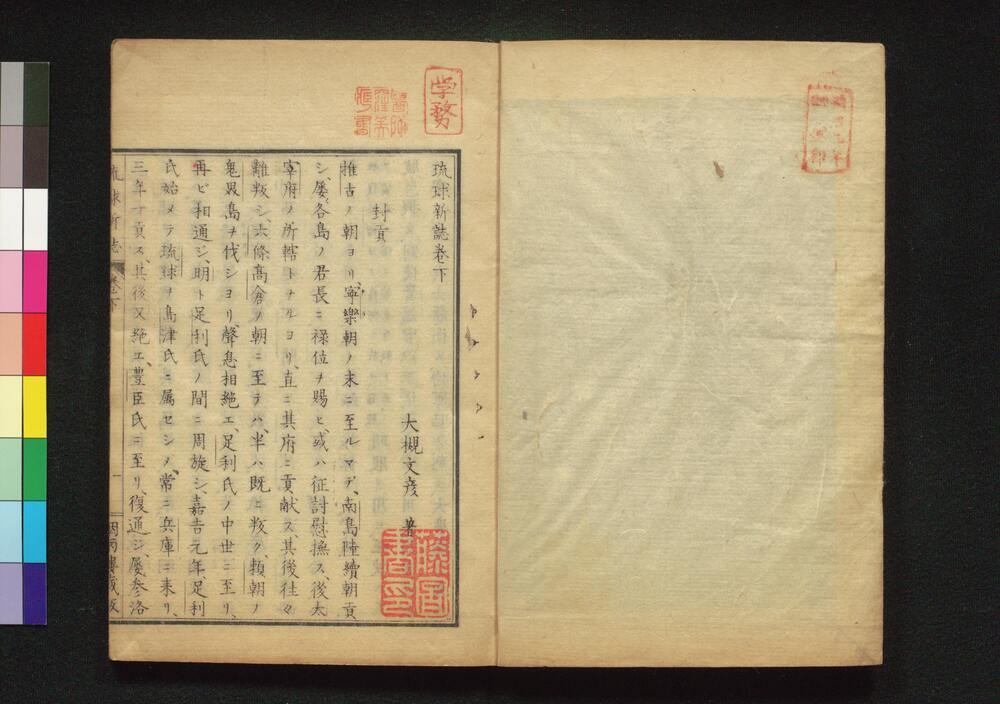 学務
琉球新誌卷下
大槻文彦 著
封貢
推古ノ朝ヨリ、寧樂朝ノ末ニ至ルマデ、南島陸續朝貢
シ、屡各島ノ君長ニ禄位ヲ賜ヒ、或ハ征討慰撫ス、後太
宰府ノ所轄トナルヨリ、直ニ其府ニ貢献ス、其後往々
離叛シ、六條高倉ノ朝ニ至テハ、半ハ既ニ叛ク、頼朝ノ
鬼界島ヲ伐シヨリ、聲息相絶エ、足利氏ノ中世ニ至リ、
再ビ相通ジ、明ト足利氏ノ間ニ周旋シ、嘉吉元年、足利
氏始メテ琉球ヲ島津氏ニ属セシメ、常ニ兵庫ニ来リ、
三年一貢ス、其後又絶エ、豊臣氏ニ至リ、復通ジ、屡参洛
琉球新誌
卷下
一